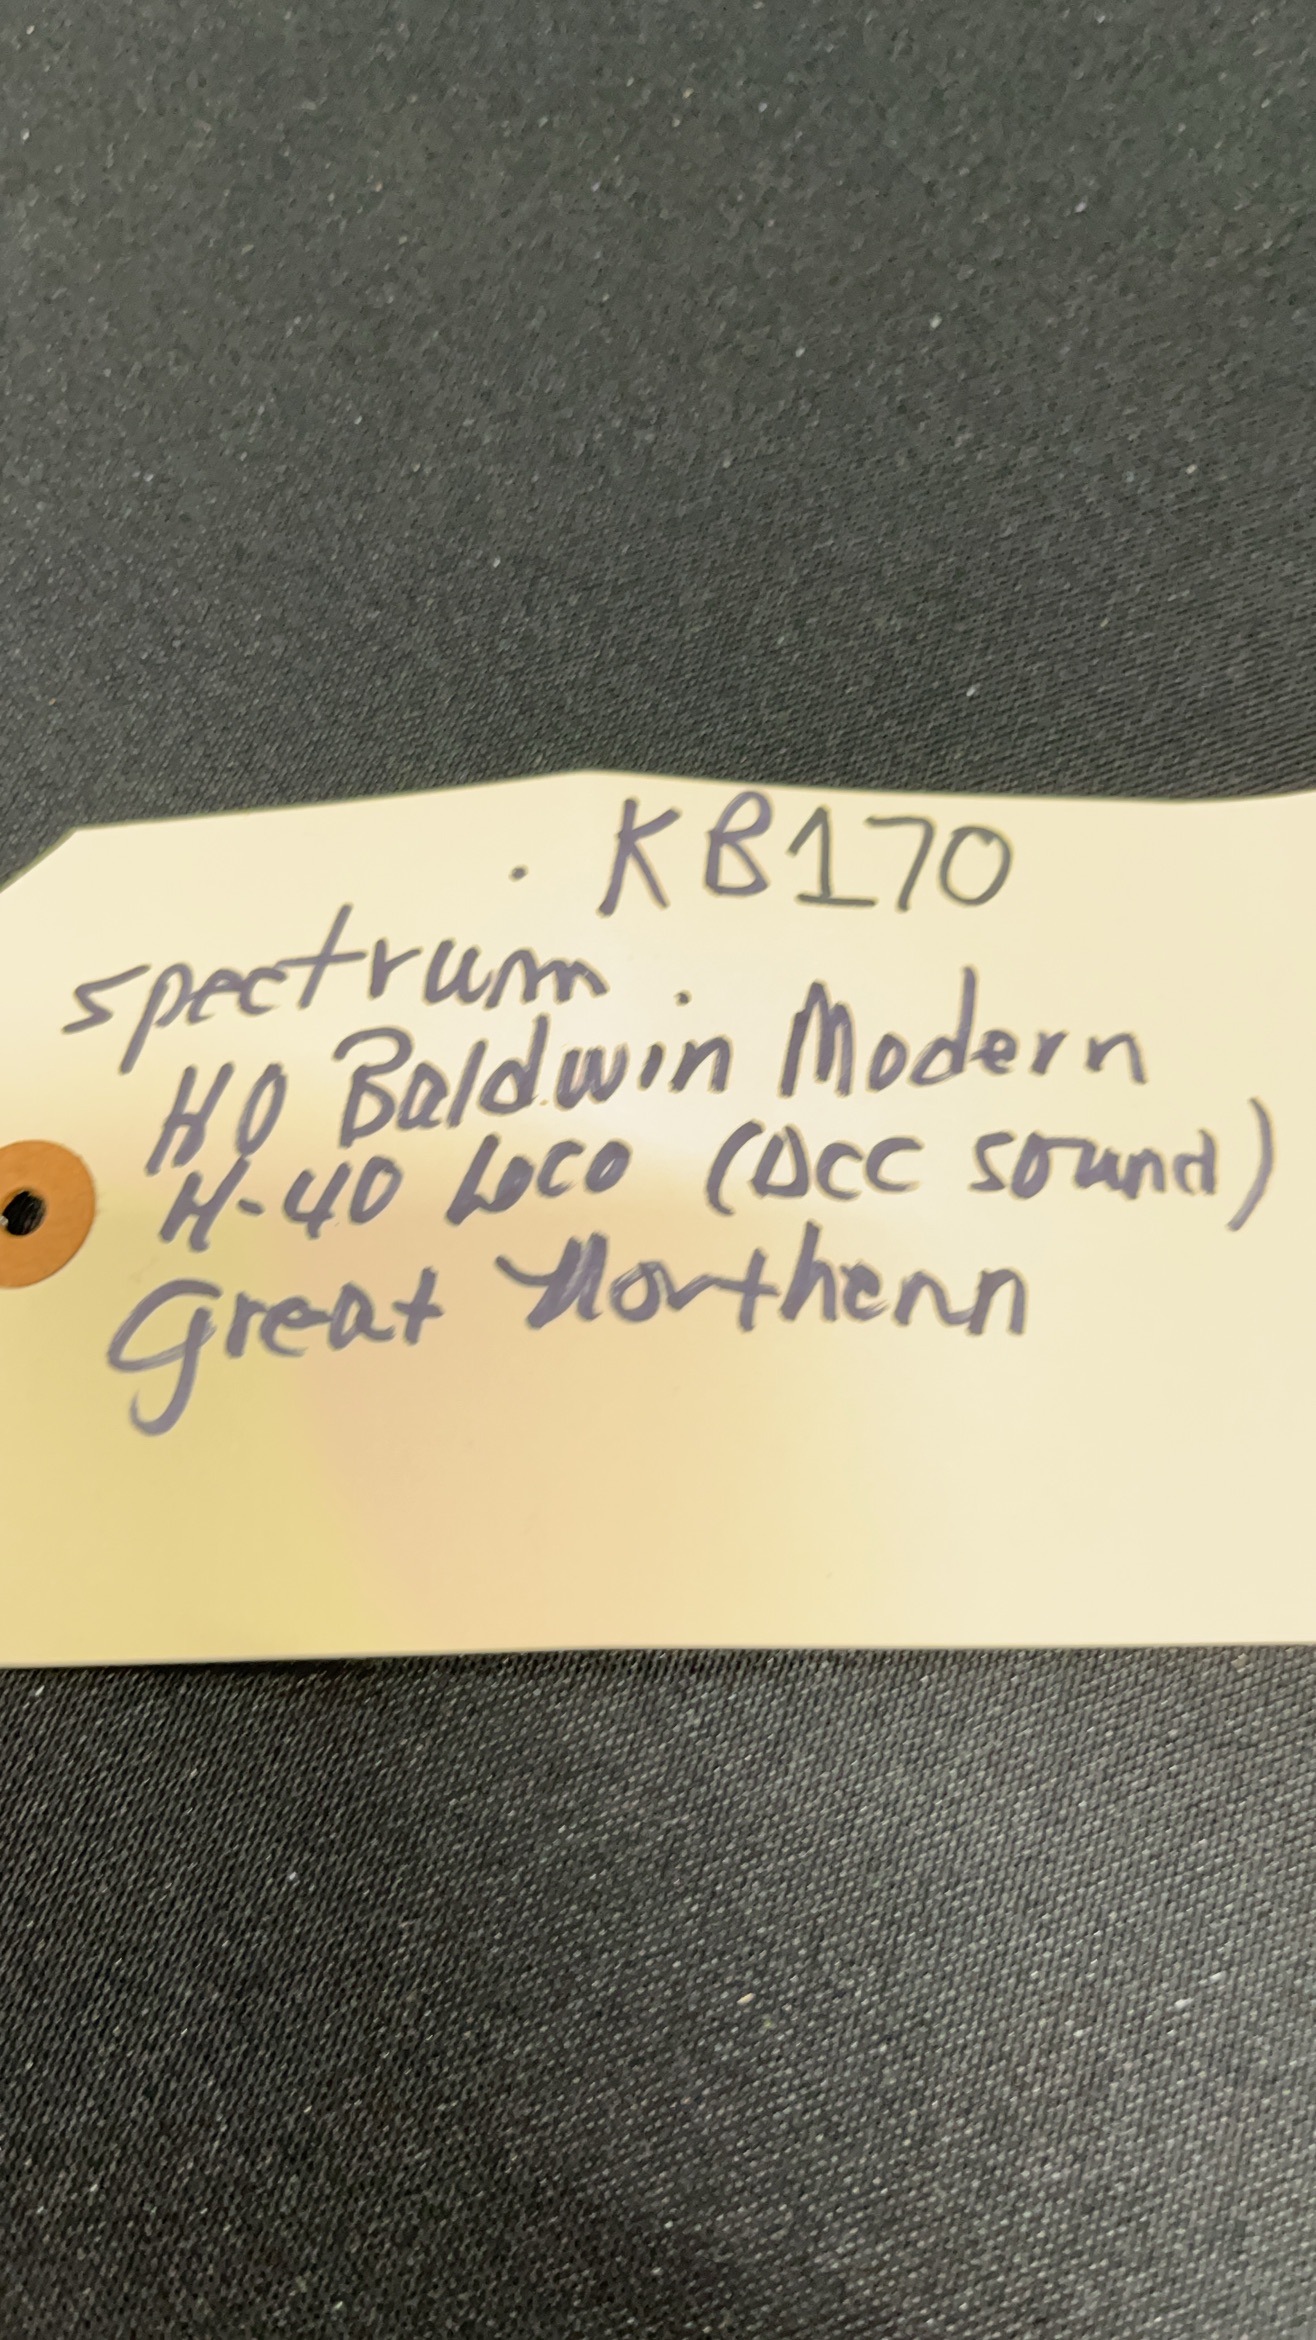 KB170
spectrum
HO Baldwin Modern
H-40 Loco (DCC sound)
Great Northern